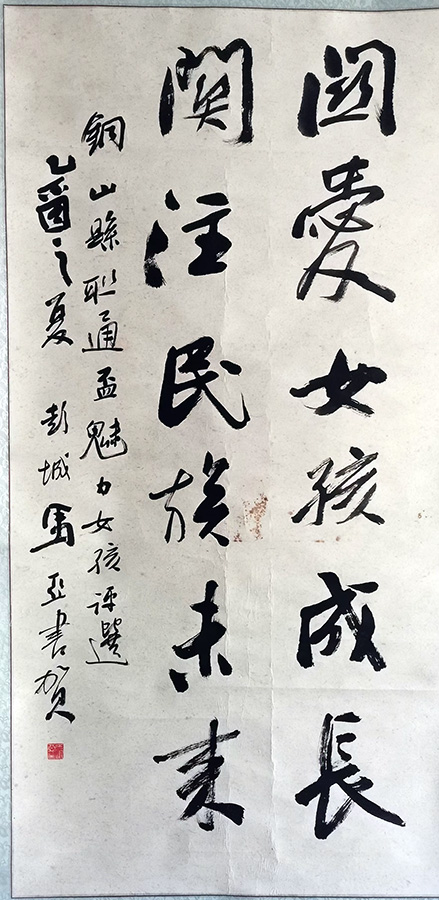 關愛女孩成長
關注民族未來
銅山縣聯通盃魅力女孩評選
乙酉之夏 彭城 亞書賀